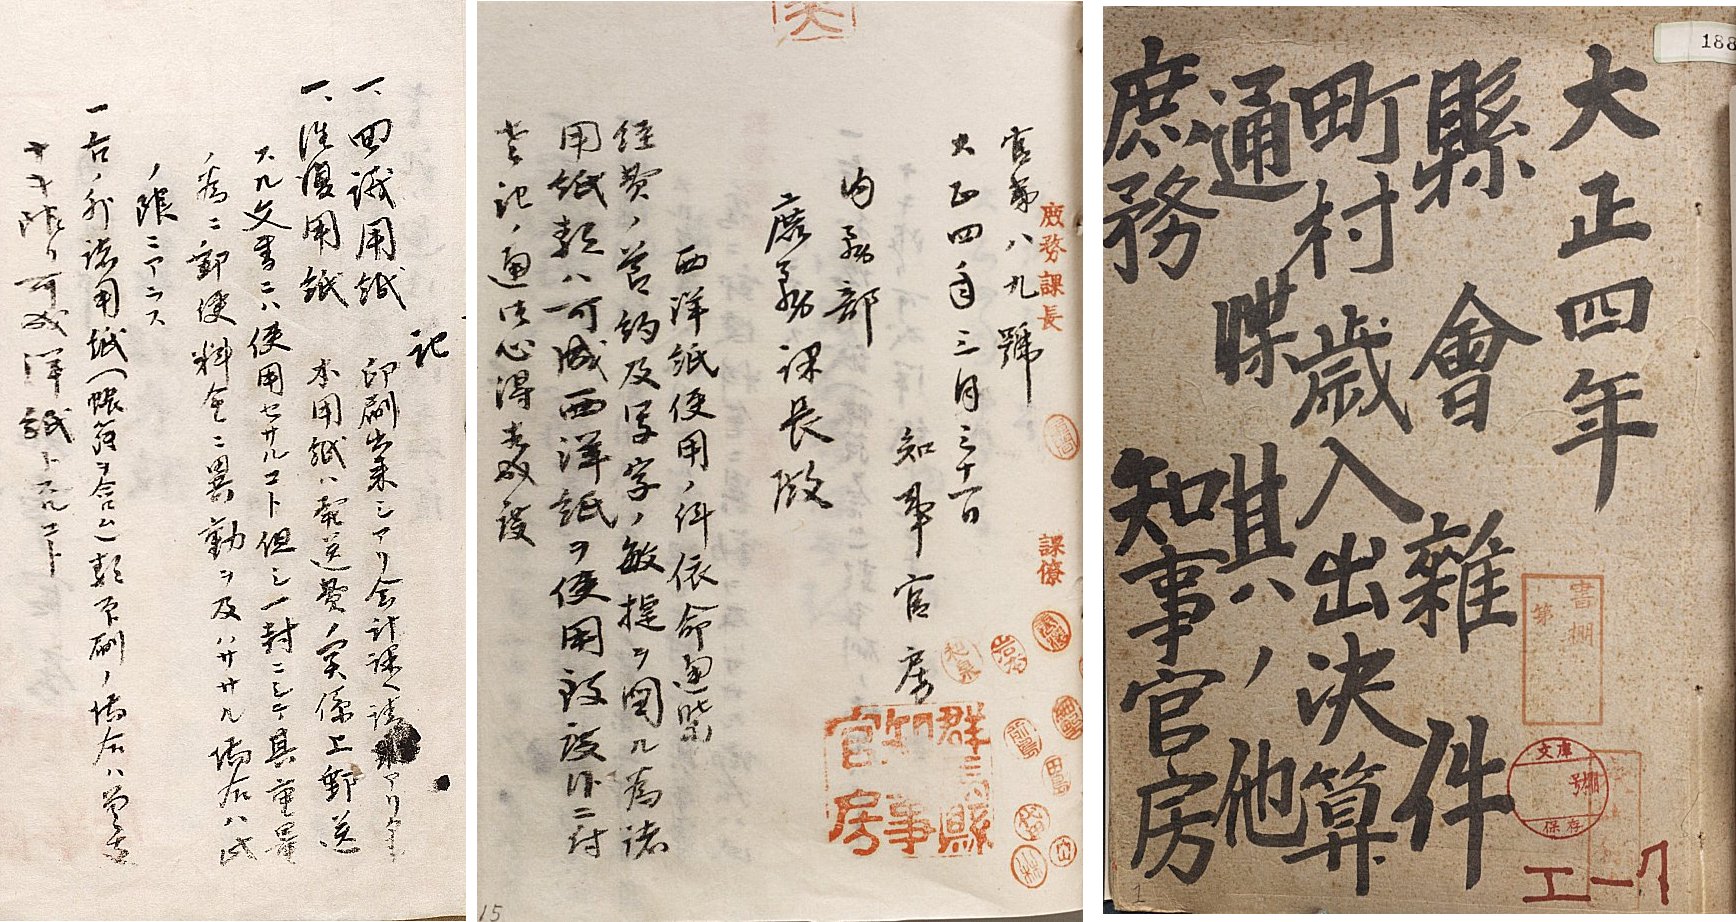 大正四年
縣會雜件
町村歳入出決算
通牒其ハノ他
庶務知事官房
書棚
第
文庫
號
保存
188
1
官第八九號
大正四年三月三十一日
知事官房
内務部
庶務課長殿
西洋紙使用ノ件依命通牒
経費ノ節約及写字ノ敏捷ヲ図ル為諸
用紙類ハ可成西洋紙ヲ使用
記ノ通御心得
庶務課長
課僚
群馬縣
知事
官房
15
記
一、回議用紙 印刷出来シアリ会計課ヘ請求アリタシ
一、往復用紙 本用紙ハ郵送費ノ関係上郵送
スル文書ニハ使用セサルコト但シ一封ニシテ其重量
ノ為ニ郵便料金ニ異動ヲ及ハササル場合ハ此
ノ限ニアラス
一右ノ外諸用紙(帳簿ヲ含ム)類印刷ノ場合ハ
限リ可成洋紙トスルコト